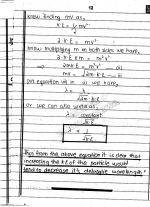 12
know finding mv as,
K.E = 1/2 mv²
2 K.E = mv²
know multiplying m on both sides we have,
2 K.E m = m²v²
⇒ 2mK.E = m²v²
⇒ mv = √2m K.E — (ii)
put equation (ii) in (i) we have,
λ = h / √2m K.E
or we can also write as,
λ = constant / √K.E
λ ∝ 1 / √K.E
Thus from the above equation it is clear that
increasing the K.E of the particle would
tend to decrease it's debroglie wavelength.